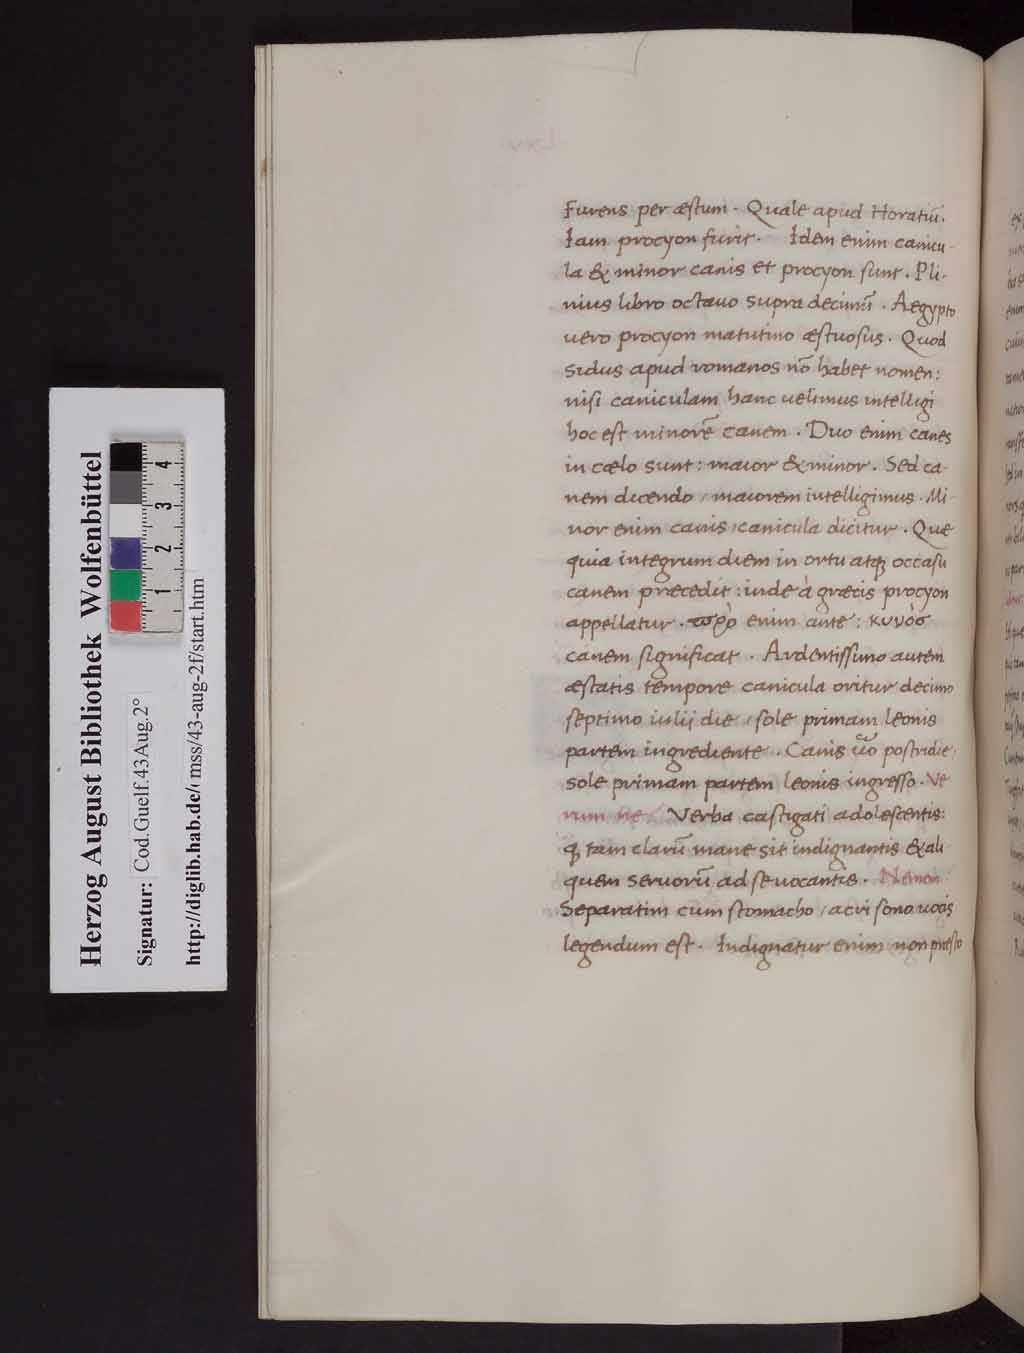 Furens per æstum. Quale apud Horatiū.
Iam procyon furit. Idem enim canicu-
la & minor canis et procyon sunt. Pli-
nius libro octavo supra decimū. Aegypto
uero procyon matutino æstuosus. Quod
sidus apud romanos nō habet nomen:
nisi caniculam hanc uelimus intelligi
hoc est minorē canem. Duo enim canes
in cælo sunt: maior & minor. Sed ca-
nem dicendo / maiorem intelligimus. Mi-
nor enim canis / canicula dicitur. Que
quia integrum diem in ortu atqꝫ occasu
canem præcedit: inde à græcis procyon
appellatur. πρὸ enim ante: κυνὸσ
canem significat. Ardentissimo autem
æstatis tempore canicula oritur decimo
septimo iulij die / sole primam leonis
partem ingrediente. Canis u͞o postridie,
sole primam partem leonis ingresso. Ve
rum ne / Verba castigati adolescentis:
ꝙ tam clarū mane sit indignantis & ali
quem seruorū ad se uocantis. Nemon
Separatim cum stomacho / acri sono uocis
legendum est. Indignatur enim non præsto
Herzog August Bibliothek Wolfenbüttel
Signatur: Cod.Guelf.43Aug.2°
http://diglib.hab.de/ mss/43-aug-2f/start.htm
1 2 3 4